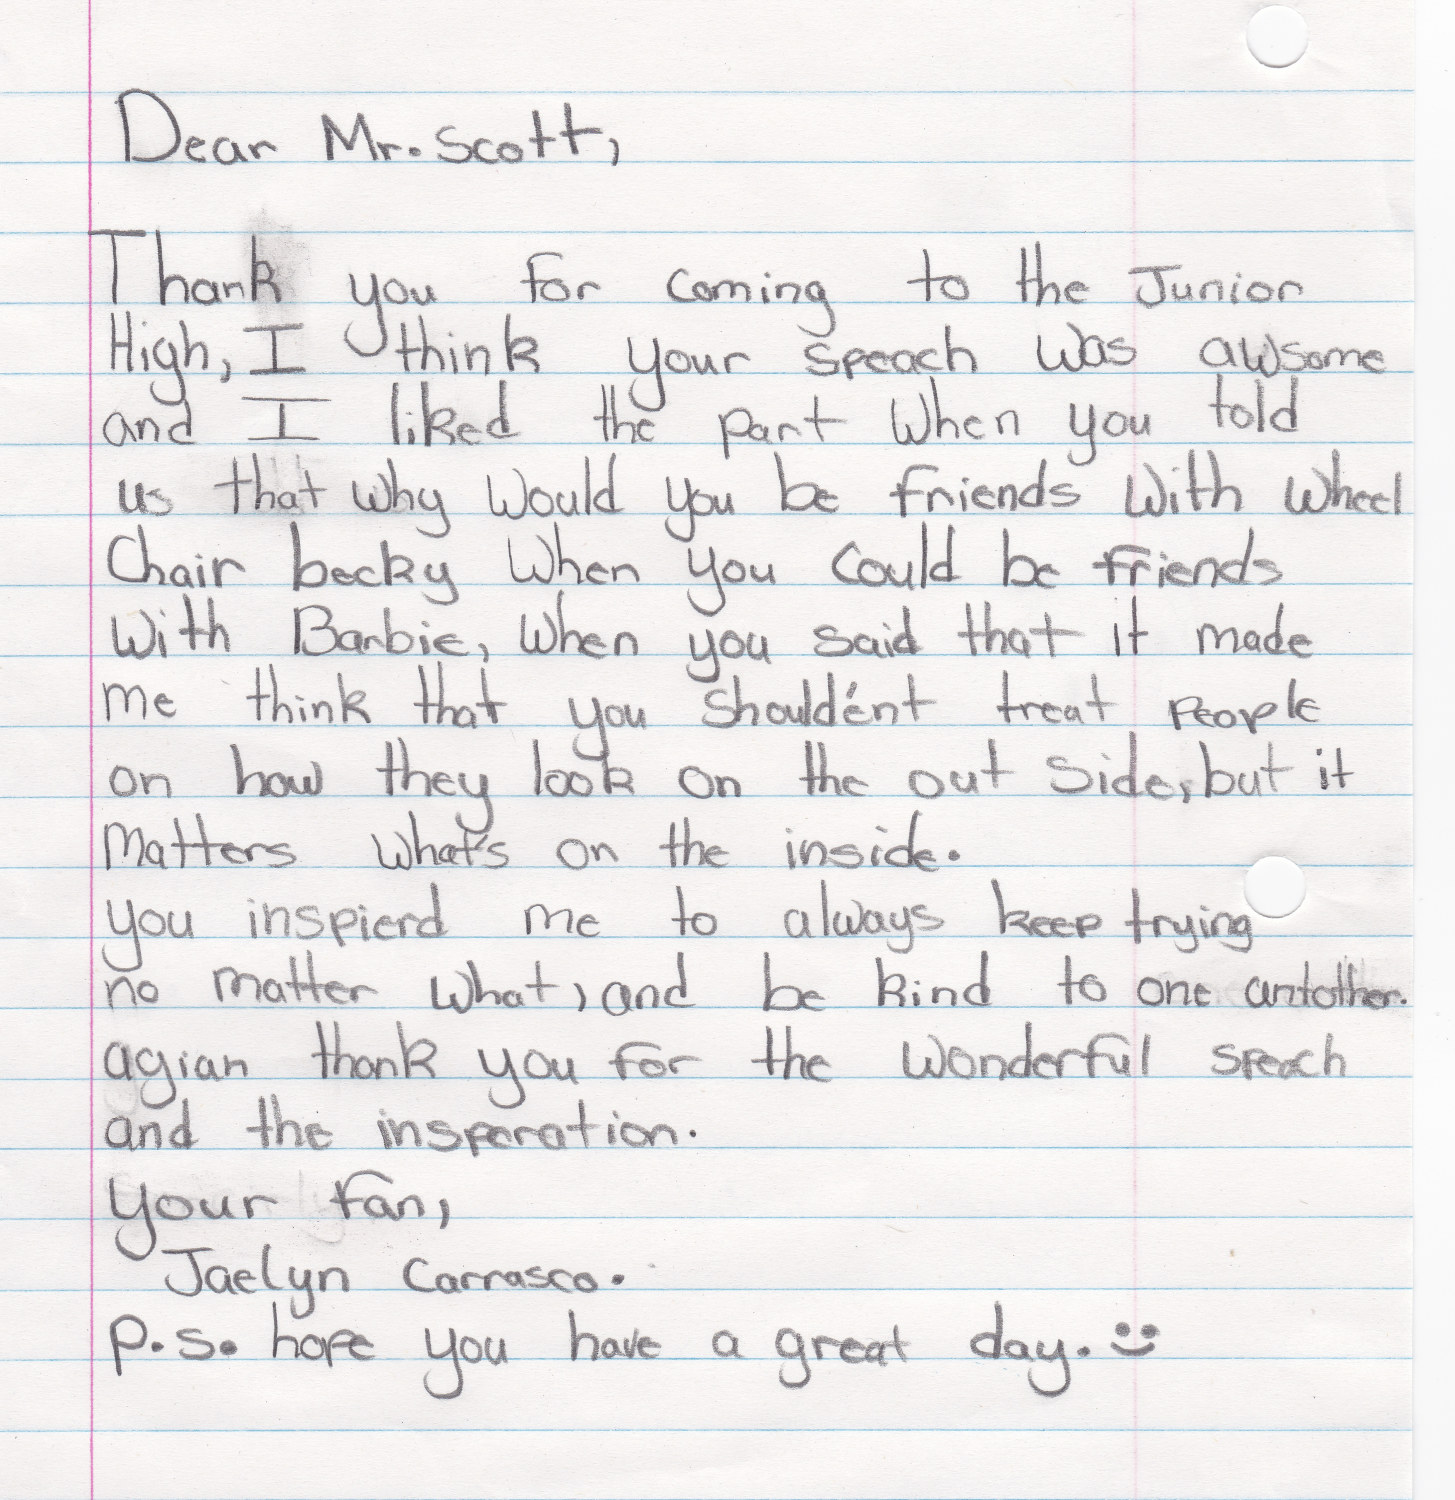 Dear Mr. Scott,
Thank you for coming to the Junior
High, I think your speach was awsome
and I liked the part when you told
us that why would you be friends with wheel
Chair becky when you could be friends
with Barbie, when you said that it made
me think that you should'ent treat people
on how they look on the out side, but it
matters what's on the inside.
you inspierd me to always keep trying
no matter what, and be kind to one antother.
agian thank you for the wonderful speach
and the insperation.
your fan,
Jaelyn Carrasco.
P.S. hope you have a great day. :)